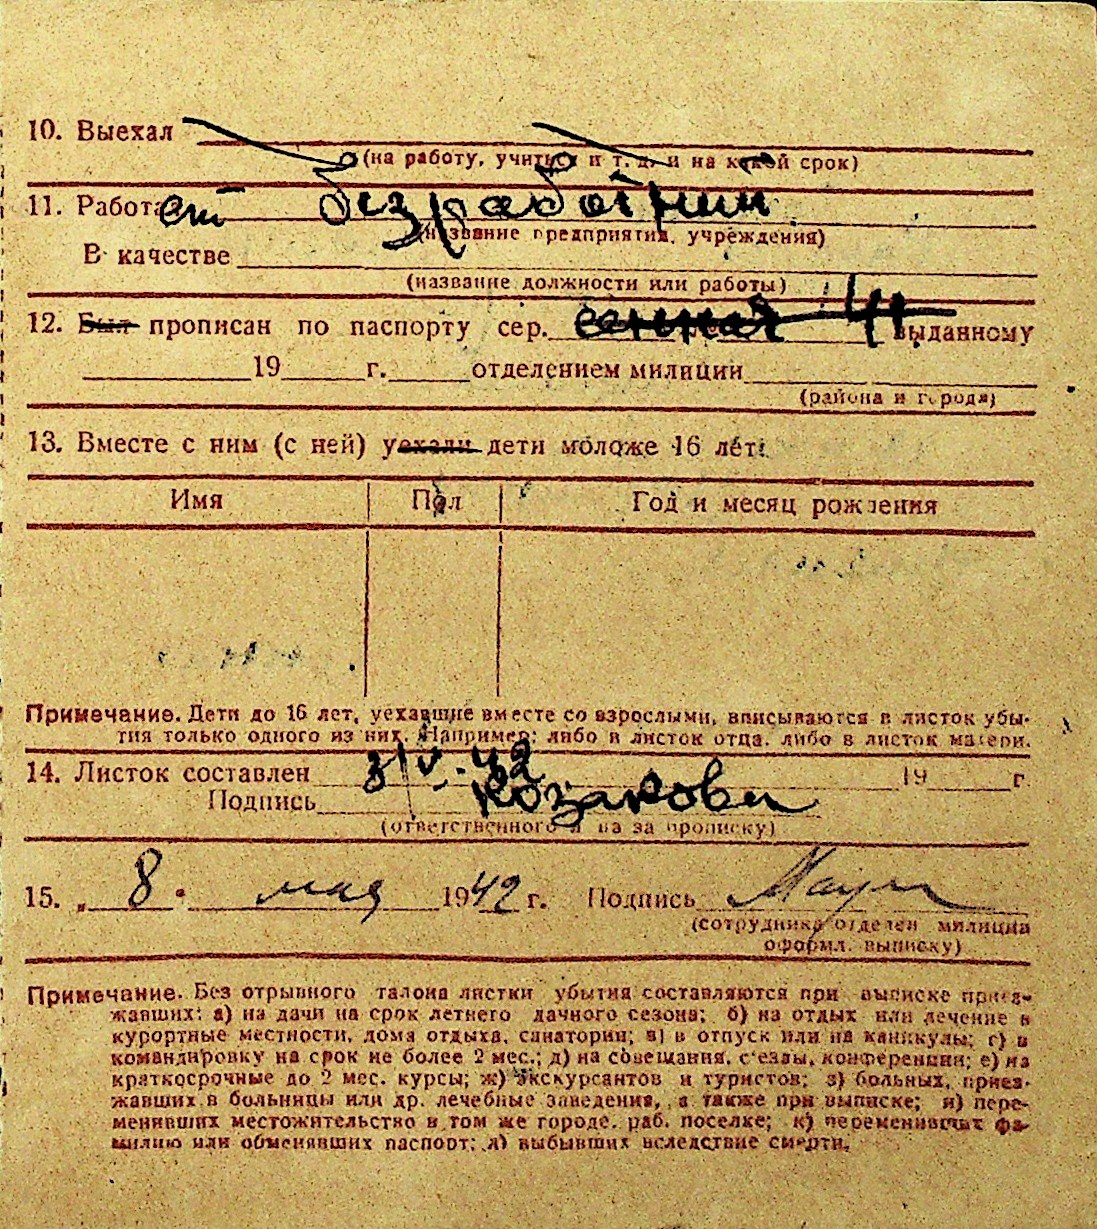 10. Выехал
(на работу, учиться и т. д. и на какой срок)
11. Работает безработный
(название предприятия, учреждения)
В качестве
(название должности или работы)
12. Был прописан по паспорту сер. выданному
19 г. отделением милиции
(района и города)
13. Вместе с ним (с ней) уехали дети моложе 16 лет:
Имя Пол Год и месяц рождения
Примечание. Дети до 16 лет, уехавшие вместе со взрослыми, вписываются в листок убы-
тия только одного из них. Например: либо в листок отца, либо в листок матери.
14. Листок составлен 3/V-42 19 г.
Подпись Козакова
(ответственного л ца за прописку)
15. „ 8 " мая 1942 г. Подпись
(сотрудника отделен милиции
оформл. выписку)
Примечание. Без отрывного талона листки убытия составляются при выписке приез-
жавших: а) на дачи на срок летнего дачного сезона; б) на отдых или лечение в
курортные местности, дома отдыха, санатории; в) в отпуск или на каникулы; г) в
командировку на срок не более 2 мес.; д) на совещания, с'езды, конференции; е) на
краткосрочные до 2 мес. курсы; ж) экскурсантов и туристов; з) больных, приез-
жавших в больницы или др. лечебные заведения, а также при выписке; и) пере-
менивших местожительство в том же городе, раб. поселке; к) переменивших фа-
милию или обменявших паспорт; л) выбывших вследствие смерти.